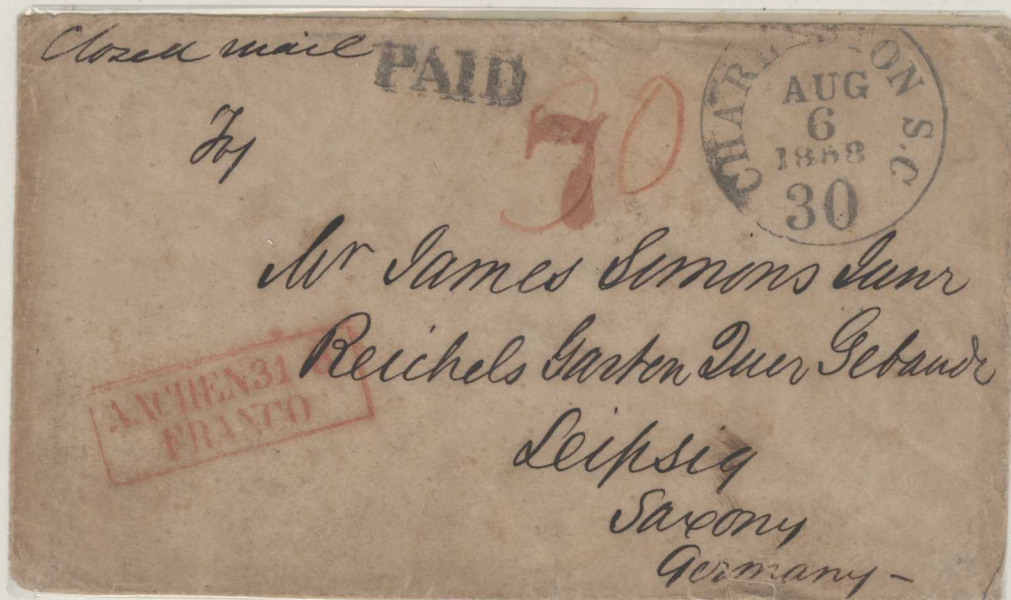 Closed mail
PAID
7
30
CHARLESTON S.C
AUG
6
1858
30
Mr James Simons Junr
Reichels Garten Quer Gebaude
Leipsig
Saxony
Germany –
AACHEN 31
FRANCO